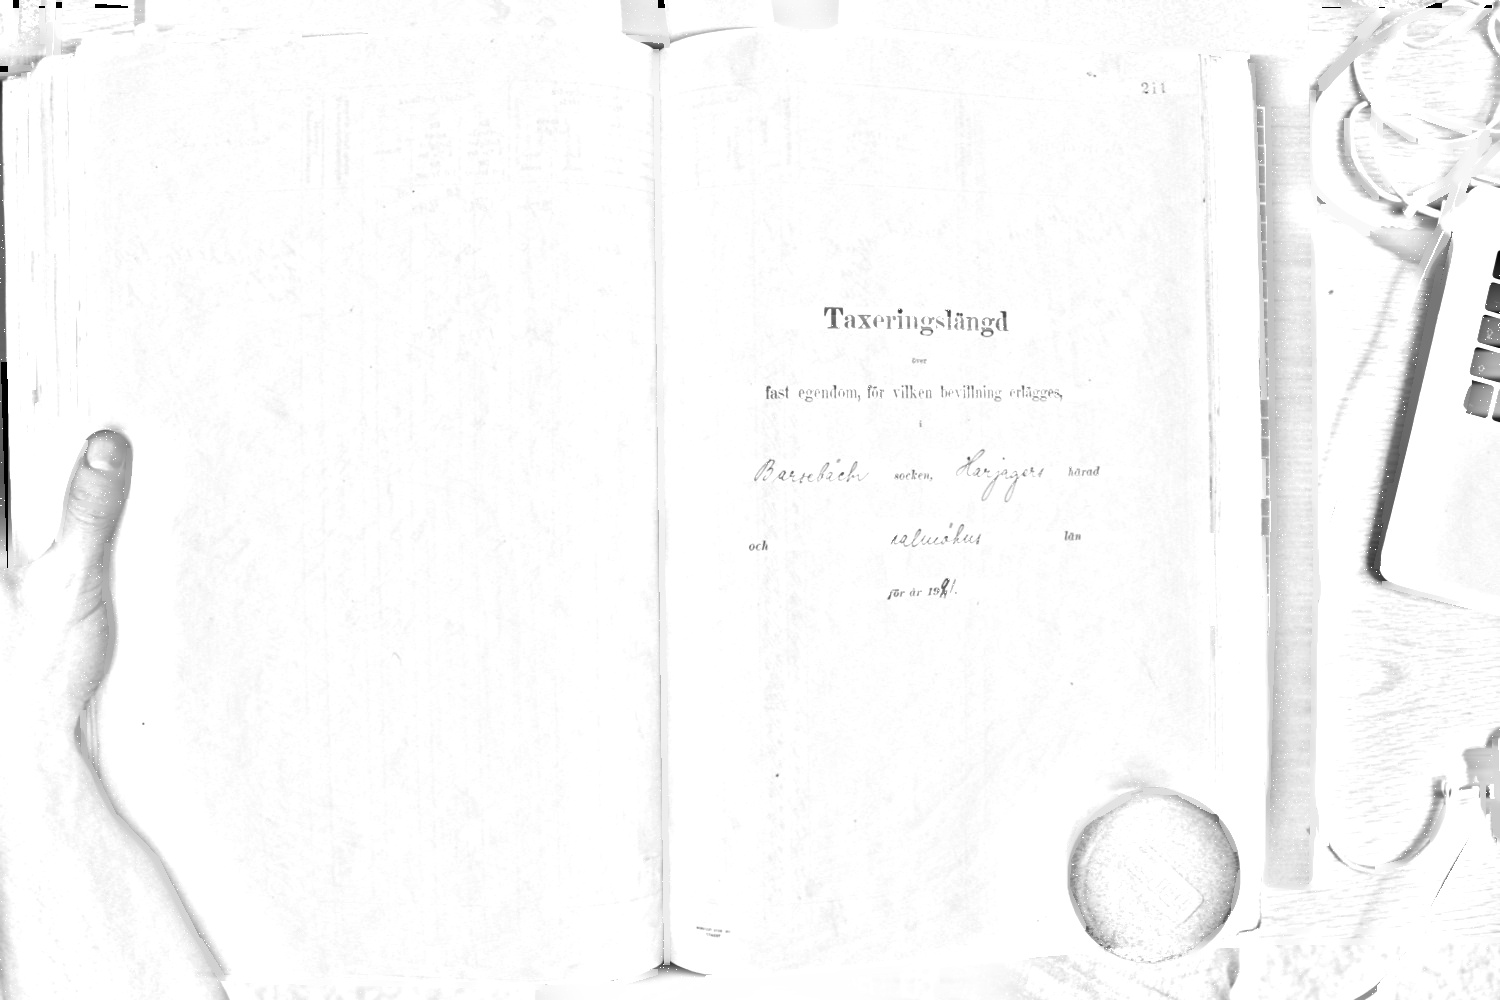 211
Taxeringslängd
över
fast egendom, för vilken bevillning erlägges,
i
Barsebäck socken, Harjagers härad
och malmöhus län
för år 1921.